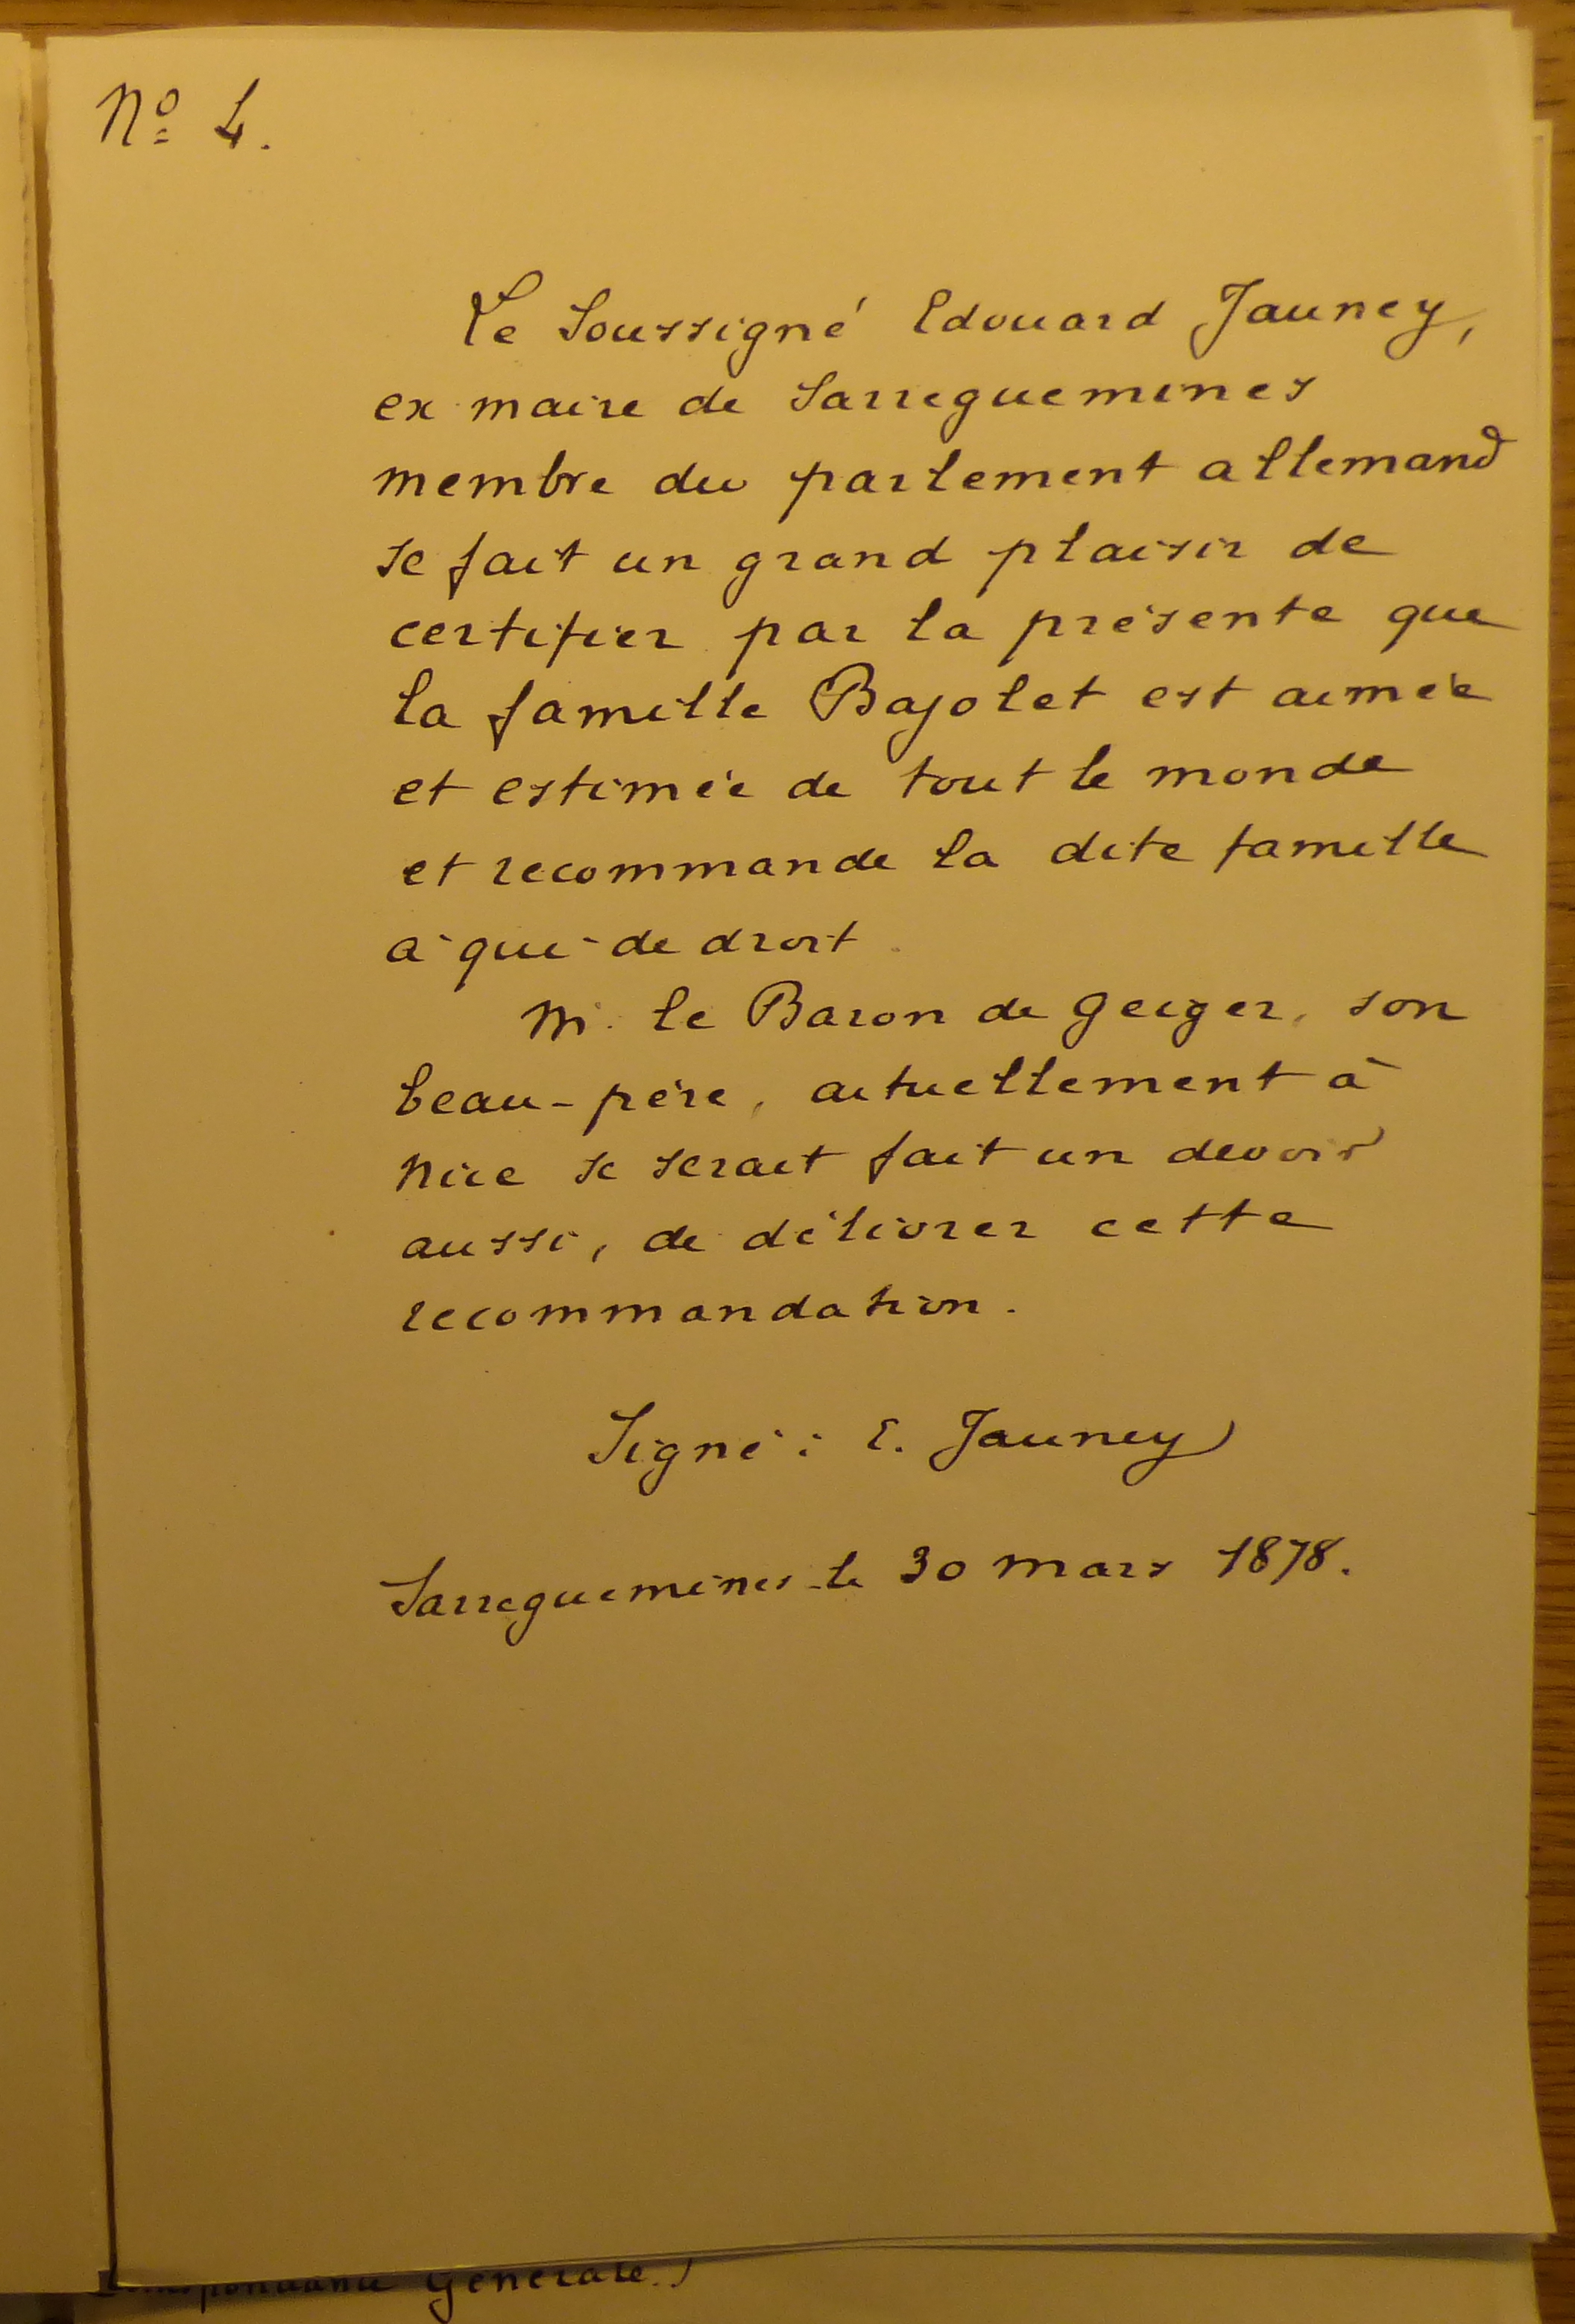 Nº 4.
Le Soussigné Edouard Jauney,
ex maire de Sarreguemines
membre du parlement allemand
se fait un grand plaisir de
certifier par la présente que
la famille Bajolet est aimée
et estimée de tout le monde
et recommande la dite famille
à qui de droit
M. le Baron de Geiger, son
beau-père, actuellement à
Nice se serait fait un devoir
aussi, de délivrer cette
recommandation.
Signé : E. Jauney
Sarreguemines le 30 mars 1878.
Générale.)